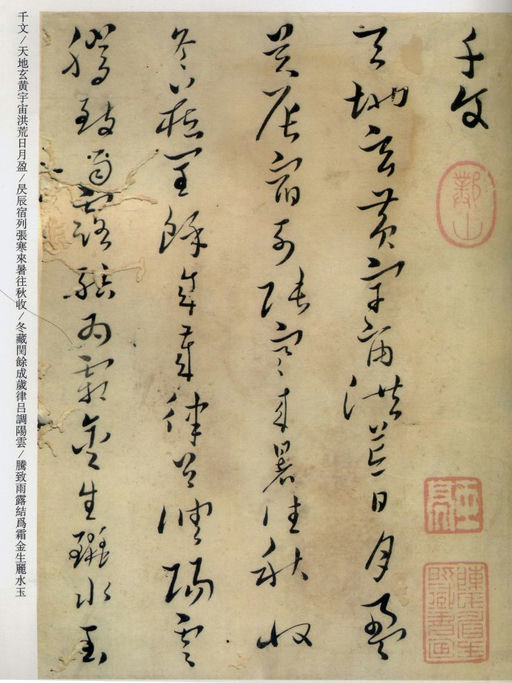 千文
天地玄黃宇宙洪荒日月盈
昃辰宿列張寒來暑往秋收
冬藏閏餘成歲律呂調陽雲
騰致雨露結爲霜金生麗水玉
千文/天地玄黃宇宙洪荒日月盈/昃辰宿列張寒來暑往秋收/冬藏閏餘成歲律呂調陽雲/騰致雨露結爲霜金生麗水玉